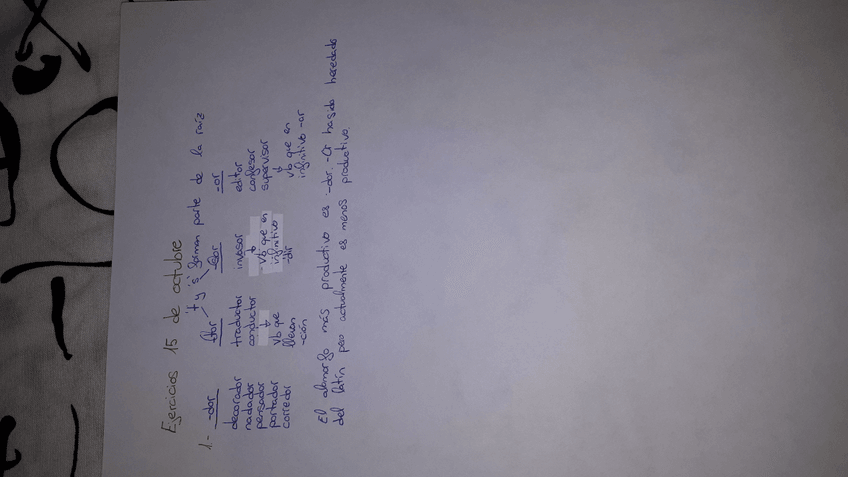 Ejercicios 15 de octubre
t y s forman parte de la raíz
1.- -dor -tor -sor -or
decorador traductor invasor editor
nadador conductor ↓ confesor
pensador ↓ vb que en supervisor
portador vb que infinitivo ↓
corredor llevan -dir vb que en
-ción infinitivo -ar
El alomorfo más productivo es -dor. -Or ha sido heredado
del latín pero actualmente es menos productivo.